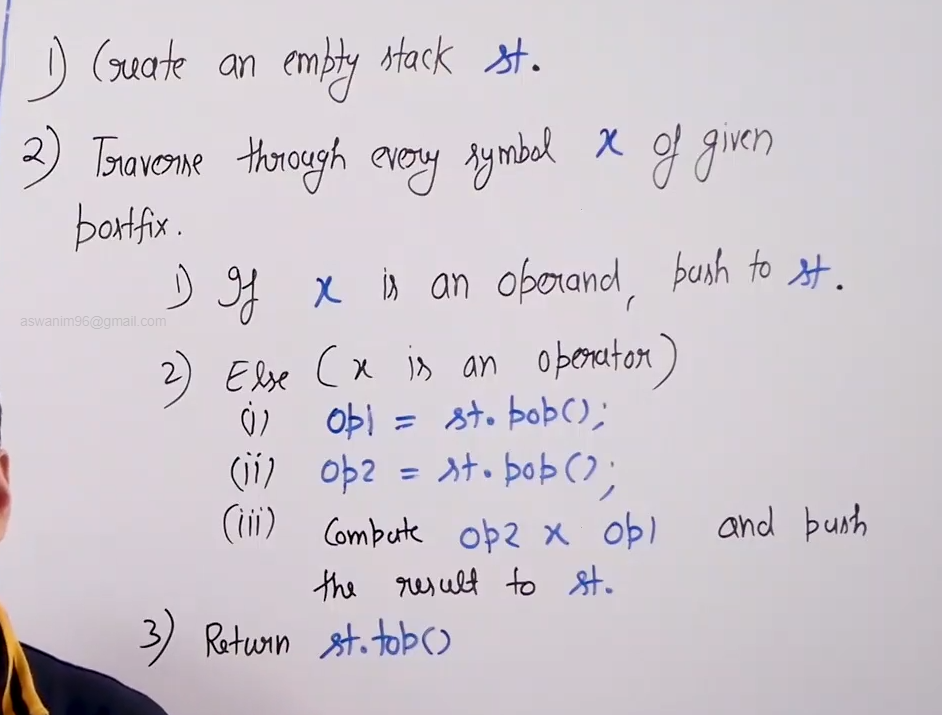 1) Create an empty stack st.
2) Traverse through every symbol x of given
postfix.
1) If x is an operand, push to st.
aswanim96@gmail.com
2) Else (x is an operator)
(i) op1 = st.pop();
(ii) op2 = st.pop();
(iii) Compute op2 x op1 and push
the result to st.
3) Return st.top()